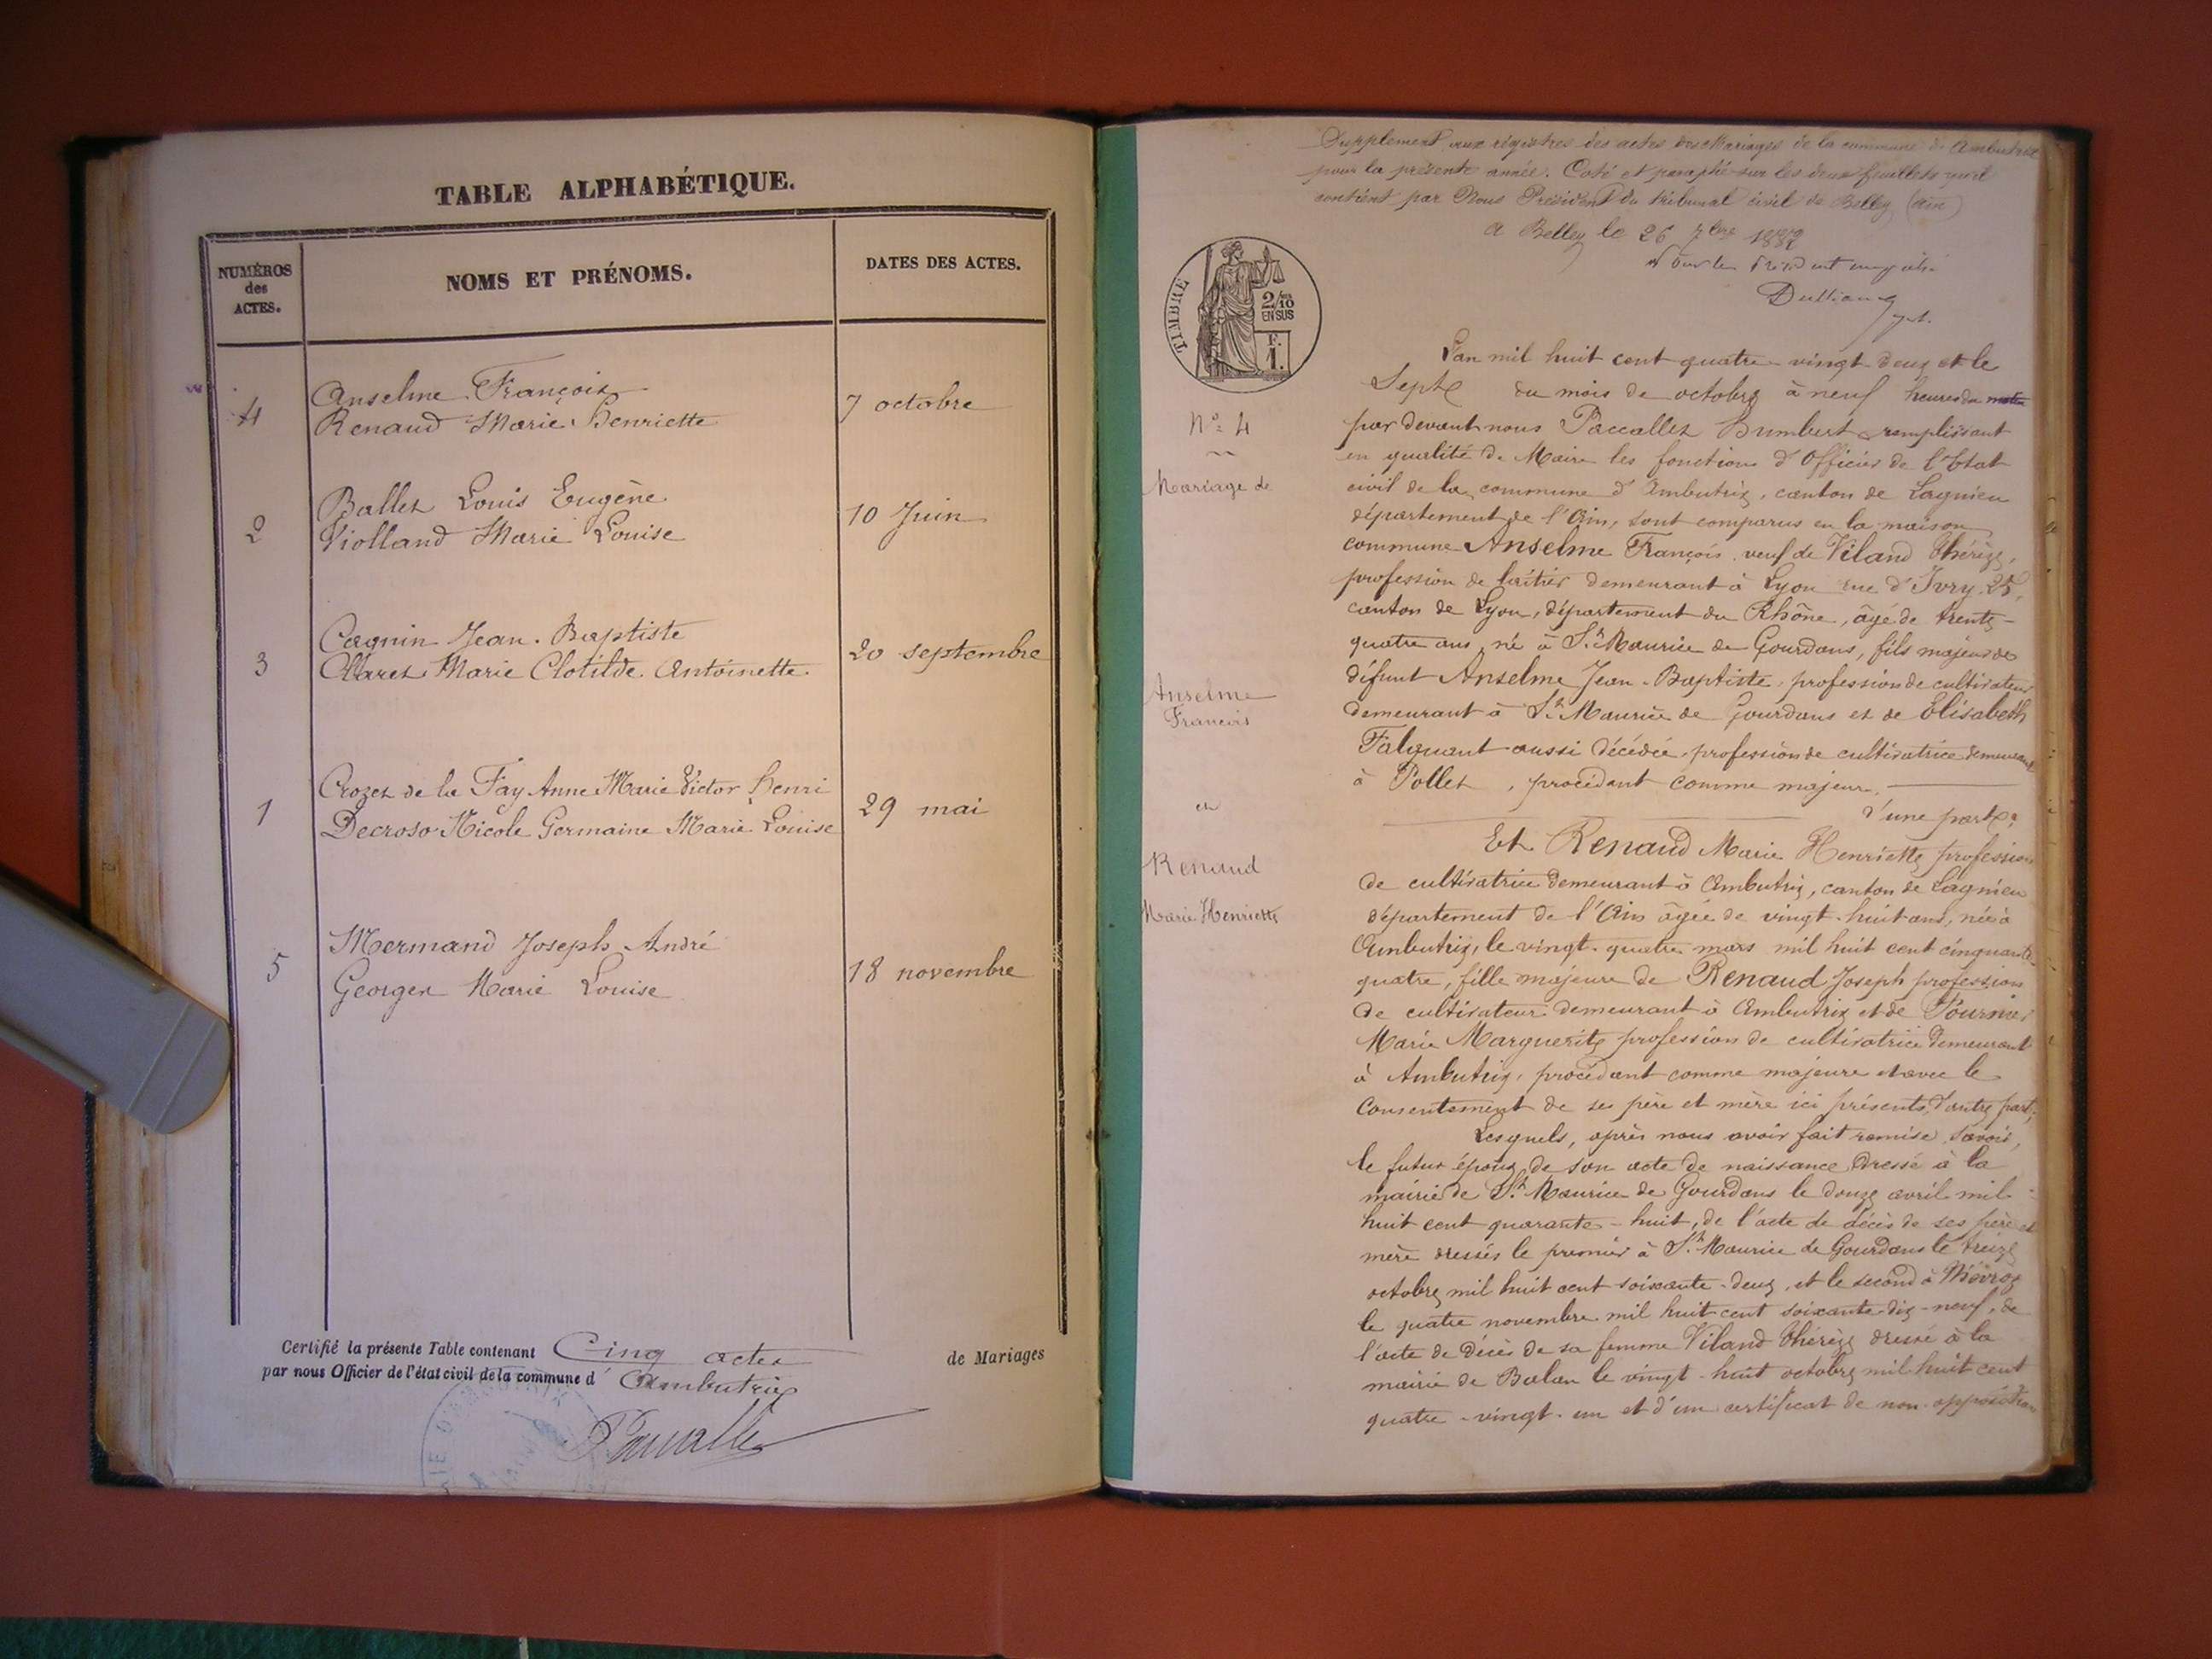 TABLE ALPHABÉTIQUE.
NUMÉROS
des
ACTES.
NOMS ET PRÉNOMS.
DATES DES ACTES.
4
Anselme François
Renaud Marie Henriette
7 octobre
2
Ballet Louis Eugène
Violland Marie Louise
10 Juin
3
Cagnin Jean-Baptiste
Claret Marie Clotilde Antoinette
20 septembre
1
Crozet de la Fay Anne Marie Victor Henri
Decroso Nicole Germaine Marie Louise
29 mai
5
Mermand Joseph André
Georges Marie Louise
18 novembre
Certifié la présente Table contenant Cinq actes de Mariages
par nous Officier de l'état civil de la commune d' Ambutrix
Supplément aux régistres des actes des Mariages de la commune de Ambutrix
pour la présente année. Coté et paraphé sur les deux feuillets qu'il
contient par Nous Président du tribunal civil de Belley (Ain)
a Belley le 26 7bre 1882
Pour le Président
TIMBRE
2/10
EN SUS
F.
1.
L'an mil huit cent quatre-vingt deux et le
Sept du mois de octobre à neuf heures du matin
par devant nous Paccallet Humbert remplissant
en qualité de Maire les fonctions d'Officier de l'Etat
civil de la commune d'Ambutrix, canton de Lagnieu
département de l'Ain, sont comparus en la maison
commune Anselme François veuf de Viland Thérèze,
profession de laitier demeurant à Lyon rue d'Ivry 25,
canton de Lyon, département du Rhône, âgé de trente-
quatre ans, né à St Maurice de Gourdans, fils majeur de
défunt Anselme Jean-Baptiste, profession de cultivateur
demeurant à St Maurice de Gourdans et de Elisabeth
Falquant aussi décédée, profession de cultivatrice demeurant
à Pollet, procédant comme majeur.
d'une part;
Et Renaud Marie Henriette profession
de cultivatrice demeurant à Ambutrix, canton de Lagnieu
département de l'Ain âgée de vingt-huit ans, née à
Ambutrix, le vingt-quatre mars mil huit cent cinquante-
quatre, fille majeure de Renaud Joseph profession
de cultivateur demeurant à Ambutrix et de Fournier
Marie Marguerite profession de cultivatrice demeurant
à Ambutrix, procédant comme majeure et avec le
Consentement de ses père et mère ici présents, d'autre part;
Lesquels, après nous avoir fait remise savoir,
le futur époux de son acte de naissance dressé à la
mairie de St Maurice de Gourdans le douze avril mil
huit cent quarante-huit, de l'acte de décès de ses père et
mère dressés le premier à St Maurice de Gourdans le treize
octobre mil huit cent soixante-deux, et le second à
le quatre novembre mil huit cent soixante-dix-neuf, de
l'acte de Décès de sa femme Viland Thérèze dressé à la
mairie de Balan le vingt-huit octobre mil huit cent
quatre-vingt-un et d'un certificat de non-opposition
No 4
Mariage de
Anselme
François
et
Renaud
Marie Henriette